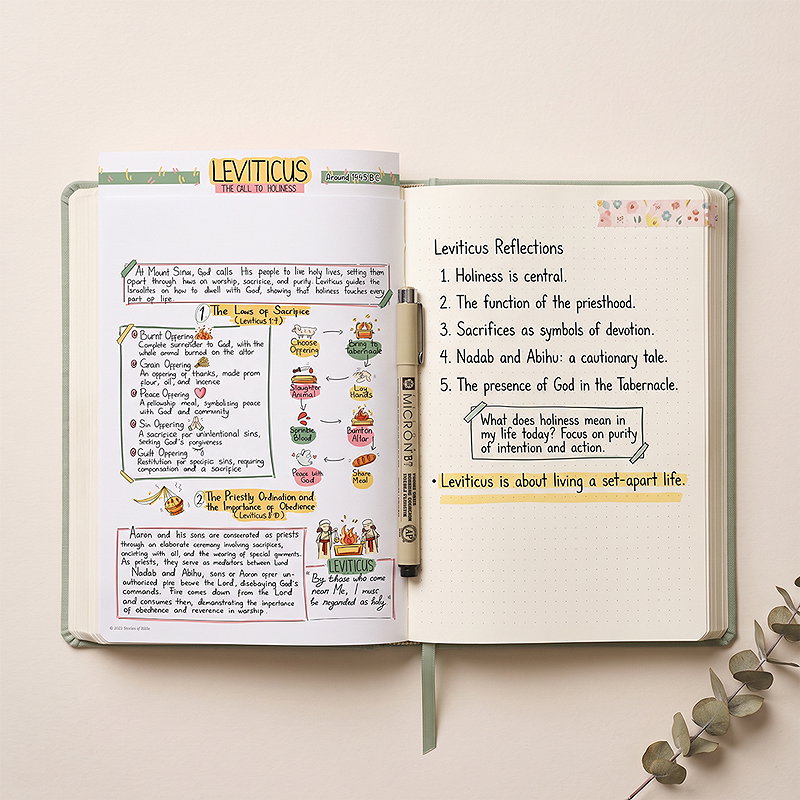 LEVITICUS
THE CALL TO HOLINESS
Around 1445 B.C
At Mount Sinai, God calls His people to live holy lives, setting them
apart through laws on worship, sacrifice, and purity. Leviticus guides the
Israelites on how to dwell with God, showing that holiness touches every
part of life.
1 The Laws of Sacrifice
(Leviticus 1-7)
Burnt Offering
Complete surrender to God, with the
whole animal burned on the altar
Grain Offering
An offering of thanks, made from
flour, oil, and incense
Peace Offering
A fellowship meal, symbolising peace
with God and community
Sin Offering
A sacrifice for unintentional sins,
seeking God's forgiveness
Guilt Offering
Restitution for specific sins, requiring
compensation and a sacrifice
Choose
Offering
Bring to
Tabernacle
Slaughter
Animal
Lay
Hands
Sprinkle
Blood
Burnt on
Altar
Peace with
God
Share
Meal
2 The Priestly Ordination and
the Importance of Obedience
(Leviticus 8-10)
Aaron and his sons are consecrated as priests
through an elaborate ceremony involving sacrifices,
anointing with oil, and the wearing of special garments.
As priests, they serve as mediators between Lord
Nadab and Abihu, sons or Aaron offer un-
authorized fire before the Lord, disobeying God's
commands. Fire comes down from the Lord
and consumes them, demonstrating the importance
of obedience and reverence in worship
LEVITICUS
"By those who come
near Me, I must
be regarded as holy"
© 2023 Stories of Bible
MICRON
Leviticus Reflections
1. Holiness is central.
2. The function of the priesthood.
3. Sacrifices as symbols of devotion.
4. Nadab and Abihu: a cautionary tale.
5. The presence of God in the Tabernacle.
What does holiness mean in
my life today? Focus on purity
of intention and action.
• Leviticus is about living a set-apart life.